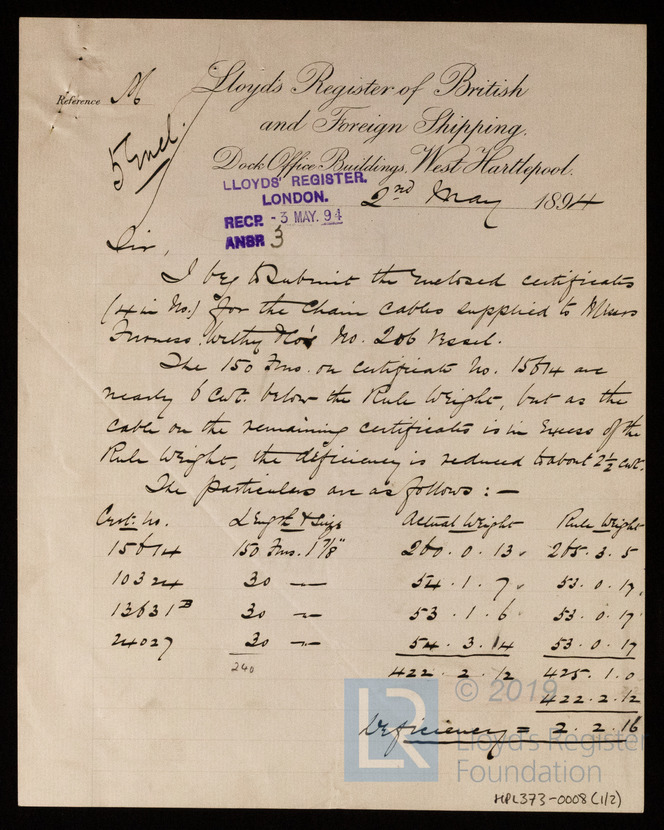 Reference M
Lloyd's Register of British
and Foreign Shipping.
5 Encl.
Dock Office Buildings, West Hartlepool.
LLOYDS' REGISTER.
LONDON.
RECP. - 3 MAY. 94
ANSR 3
2nd May 1894
Sir,
I beg to submit the enclosed certificates
(4 in No.) for the chain cables supplied to Messrs
Furness Withy & Co's No. 206 Vessel.
The 150 Fms. on certificate No. 15614 are
nearly 6 cwt. below the Rule Weight, but as the
cable on the remaining certificates is in excess of the
Rule Weight, the deficiency is reduced to about 2½ cwt.
The particulars are as follows : —
Cert. No. Length & Size Actual Weight Rule Weight
15614 150 Fms. 1 7/8" 260 . 0 . 13 265 . 3 . 5
10324 30 — 54 . 1 . 7 53 . 0 . 17
13631B 30 — 53 . 1 . 6 53 . 0 . 17
24027 30 — 54 . 3 . 14 53 . 0 . 17
240 422 . 2 . 12 425 . 1 . 0
422 . 2 . 12
Deficiency = 2 . 2 . 16
LR © 2019
Lloyd's Register
Foundation
HPL373-0008 (1/2)